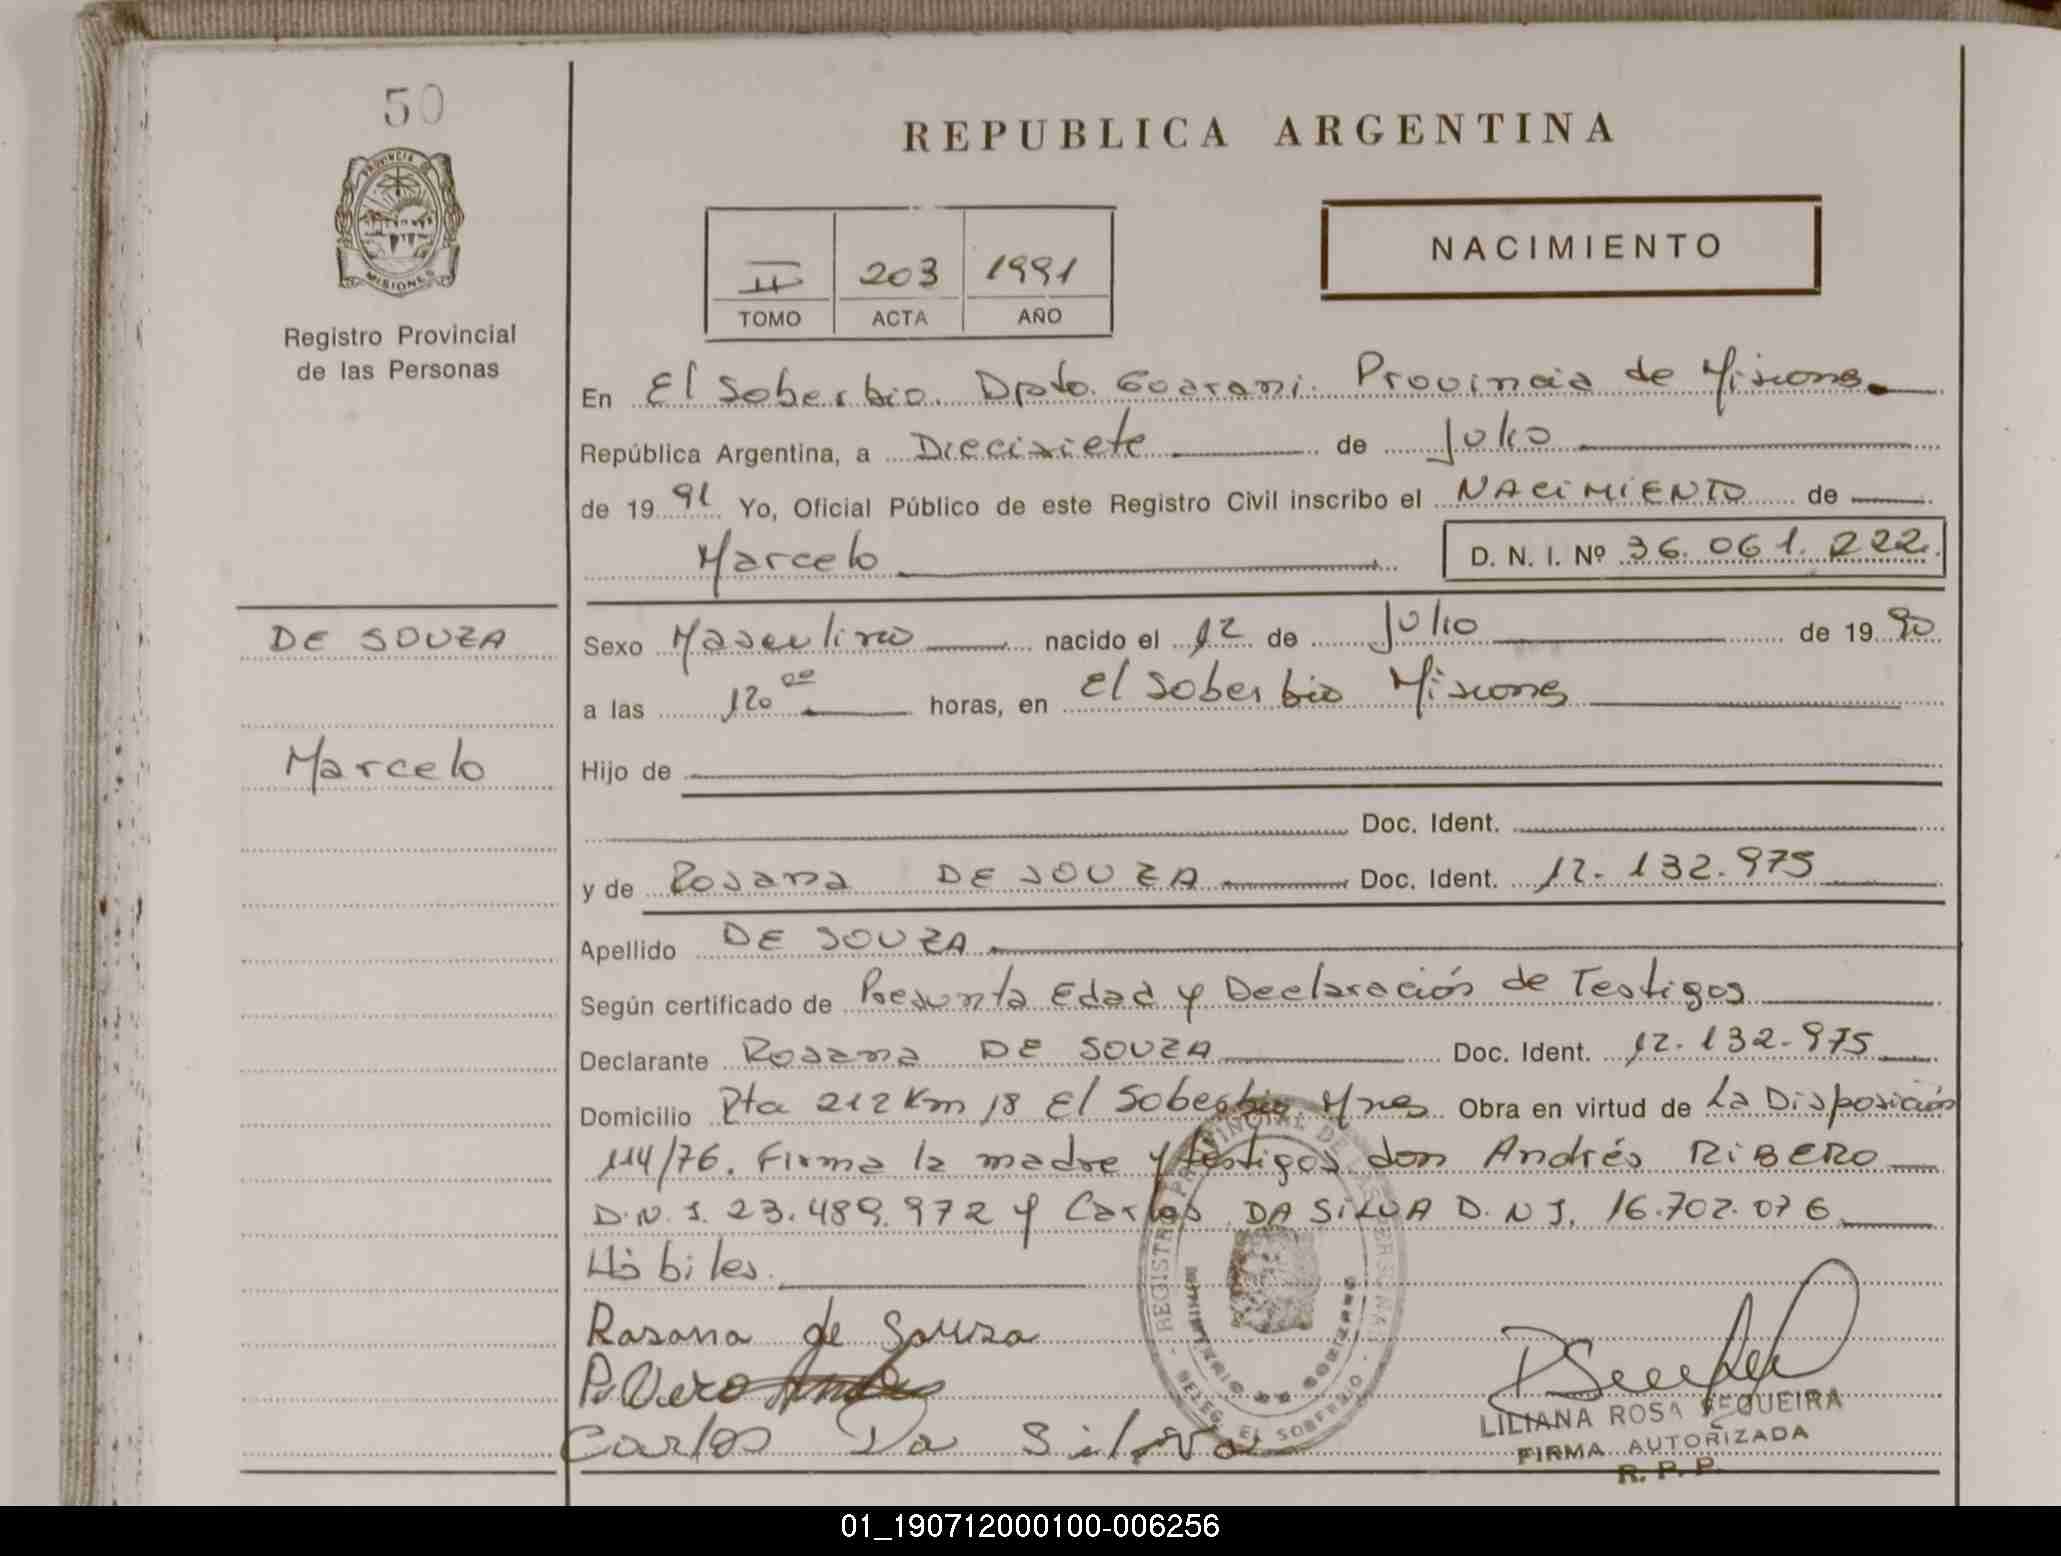 50
PROVINCIA D
MISIONES
Registro Provincial
de las Personas
DE SOUZA
Marcelo
REPUBLICA ARGENTINA
II 203 1991
TOMO ACTA AÑO
NACIMIENTO
En El Soberbio. Dpto. Guarani. Provincia de Misiones.
República Argentina, a Diecisiete de Julio
de 19 91 Yo, Oficial Público de este Registro Civil inscribo el NACIMIENTO de
Marcelo D. N. I. Nº 36.061.222.
Sexo Masculino nacido el 12 de Julio de 19 90
a las 120 00 horas, en El Soberbio Misiones
Hijo de
Doc. Ident.
y de Rosana DE SOUZA Doc. Ident. 12.132.975
Apellido DE SOUZA
Según certificado de Presunta Edad y Declaración de Testigos
Declarante Rosana DE SOUZA Doc. Ident. 12.132.975
Domicilio Rta 212 Km 18 El Soberbio Mnes Obra en virtud de La Disposición
114/76. Firma la madre y testigos don Andrés RIBERO
D.N.I. 23.489.972 y Carlos DA SILVA D.N.I. 16.702.076
Hábiles.
Rosana de Souza
Carlos Da Silva
REGISTRO PROVINCIAL DE LAS PERSONAS
DELEG. EL SOBERBIO
LILIANA ROSA SEQUEIRA
FIRMA AUTORIZADA
R. P. P.
01_190712000100-006256